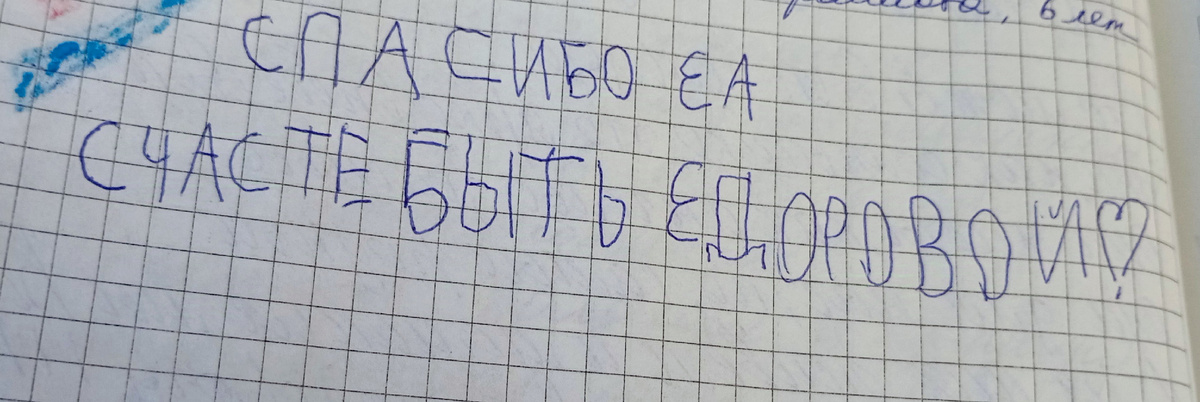 6 лет
СПАСИБО ЗА
СЧАСТЕ БЫТЬ ЗДОРОВОЙ♡